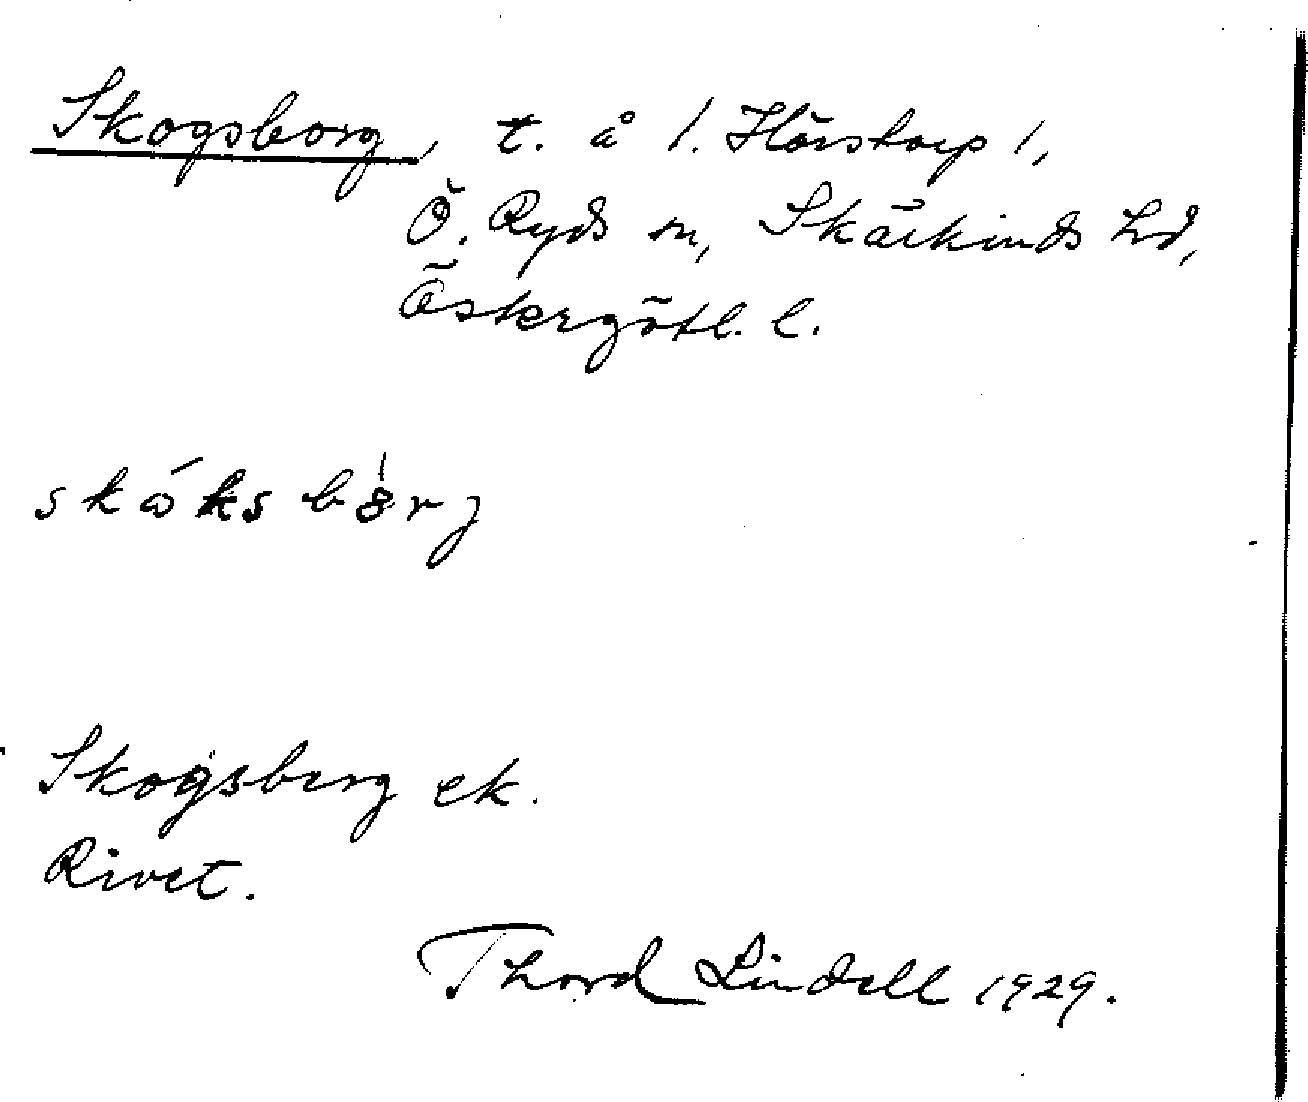 Skogsborg, t. å /. Hörstorp /,
Ö. Ryds sn, Skärkinds hd,
Östergötl. l.
skóksbȯrj
Skogsberg ek.
Rivet.
Thord Lindell 1929.